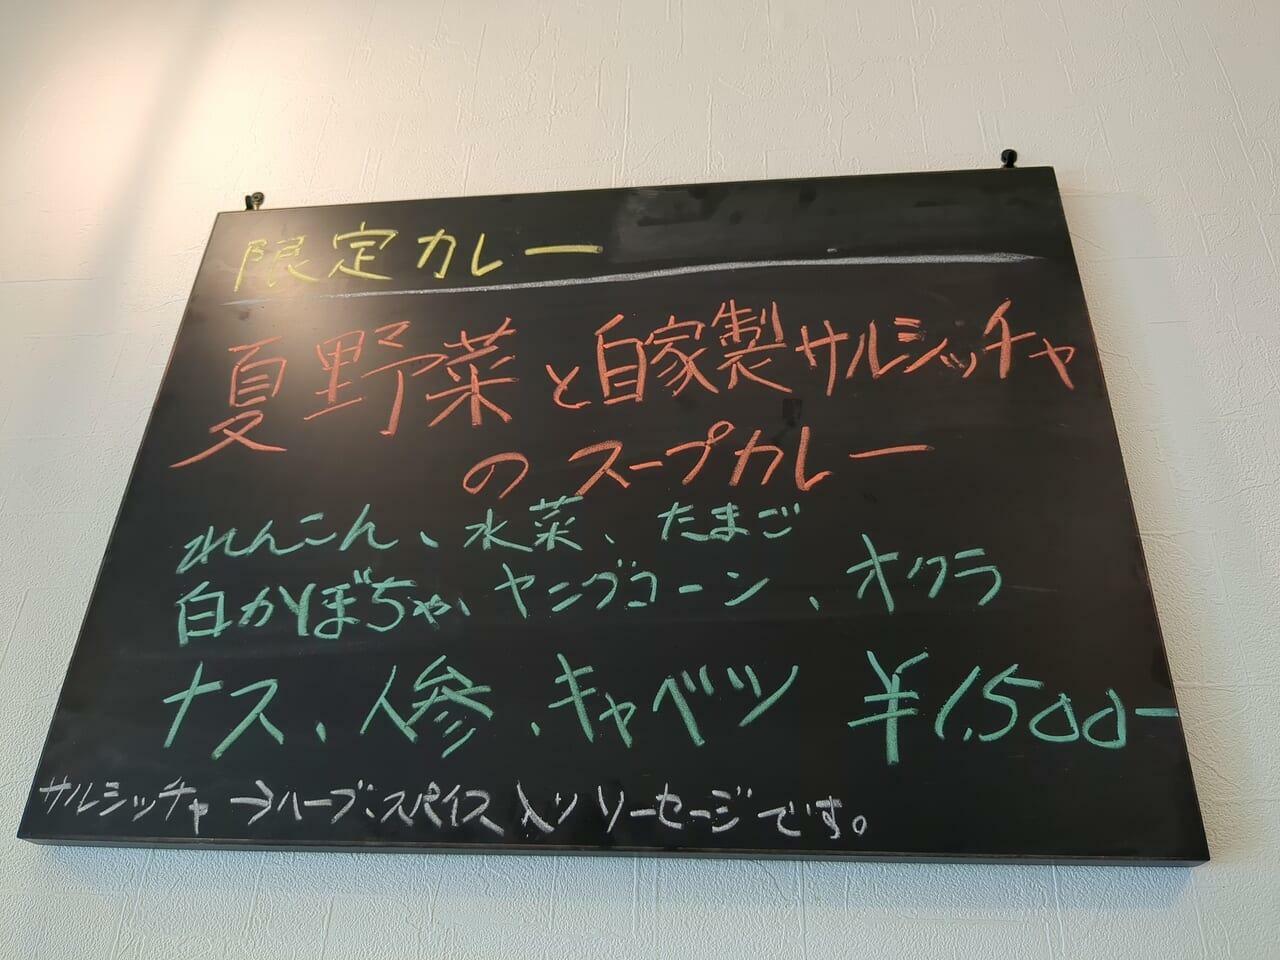 限定カレー
夏野菜と自家製サルシッチャ
のスープカレー
れんこん、水菜、たまご
白かぼちゃ、ヤングコーン、オクラ
ナス、人参、キャベツ ¥1,500-
サルシッチャ→ハーブ、スパイス入りソーセージです。